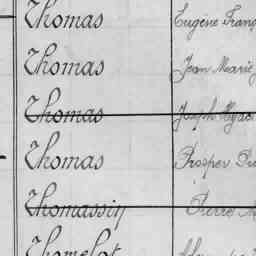 Thomas Eugène Franç
Thomas Jean Marie
Thomas Joseph Hyac
Thomas Prosper
Thomassin Pierre
Thomelot